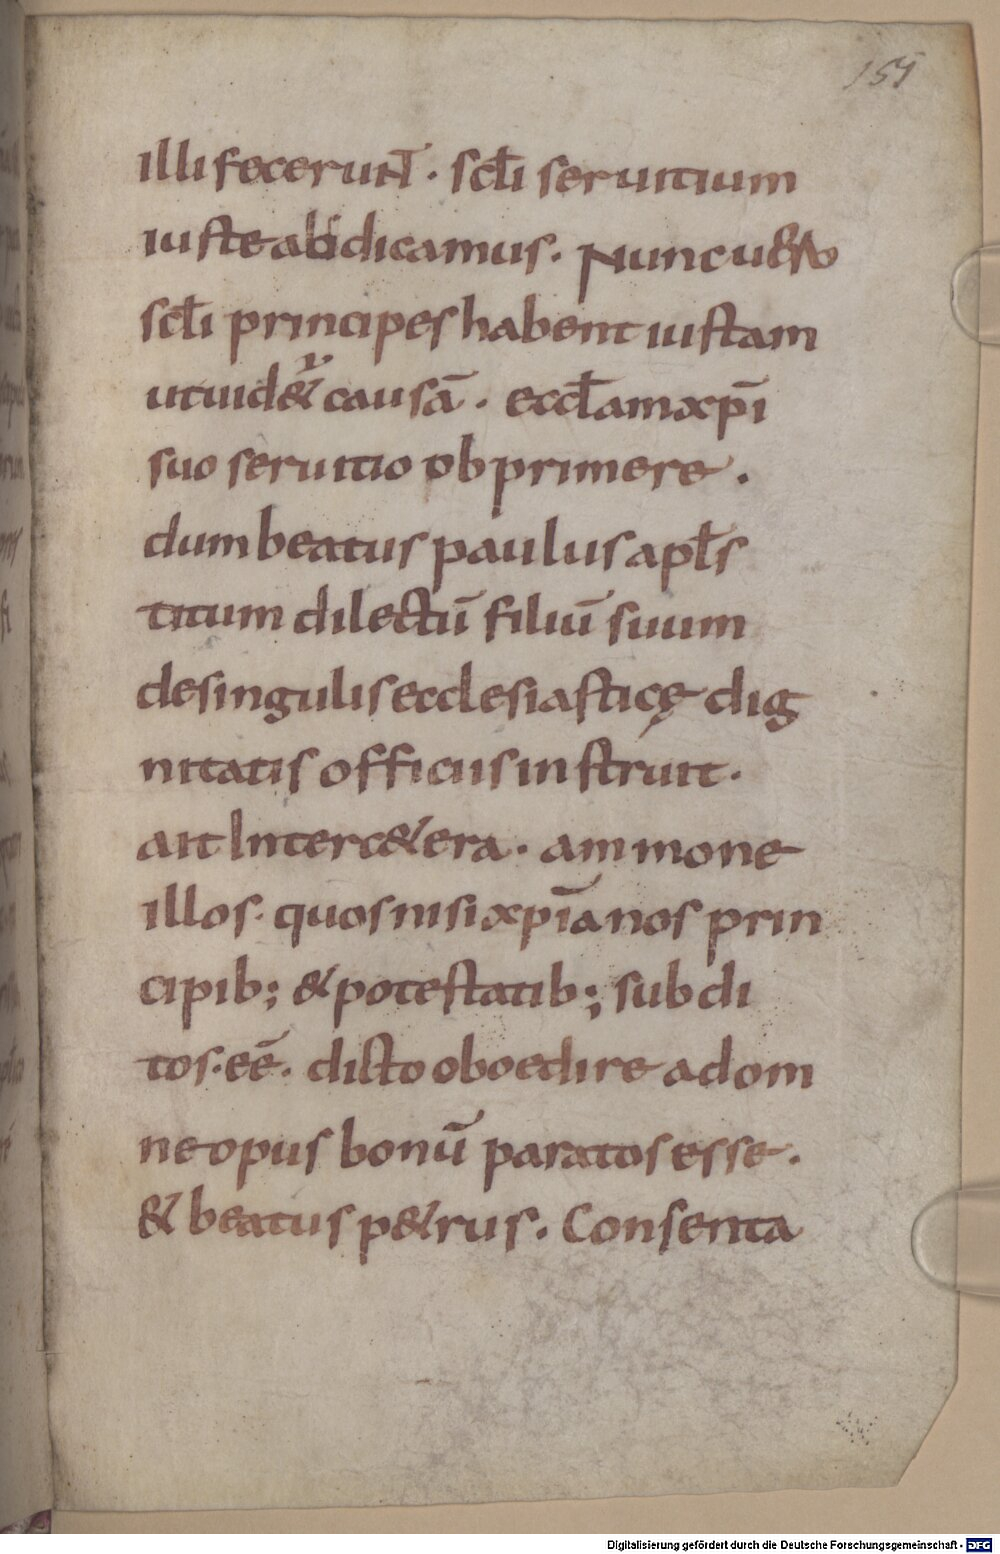 151
illi fecerunt. scl̅i seruitium
iuste abdicamus. Nunc u&̅ro
scl̅i principes habent iustam
ut uid&ur causā. eccl̅am xp̅i
suo seruitio obprimere.
dum beatus paulus apl̅s
titum dilectū filiū suum
de singulis ecclesiasticę dig
nitatis officiis instruit.
ait Inter c&era. ammone
illos. quos nisi xp̅ianos prin
cipib; & potestatib; subdi
tos. eē. dicto oboedire ad om
ne opus bonū paratos esse.
& beatus p&rus. Consenta
Digitalisierung gefördert durch die Deutsche Forschungsgemeinschaft - DFG